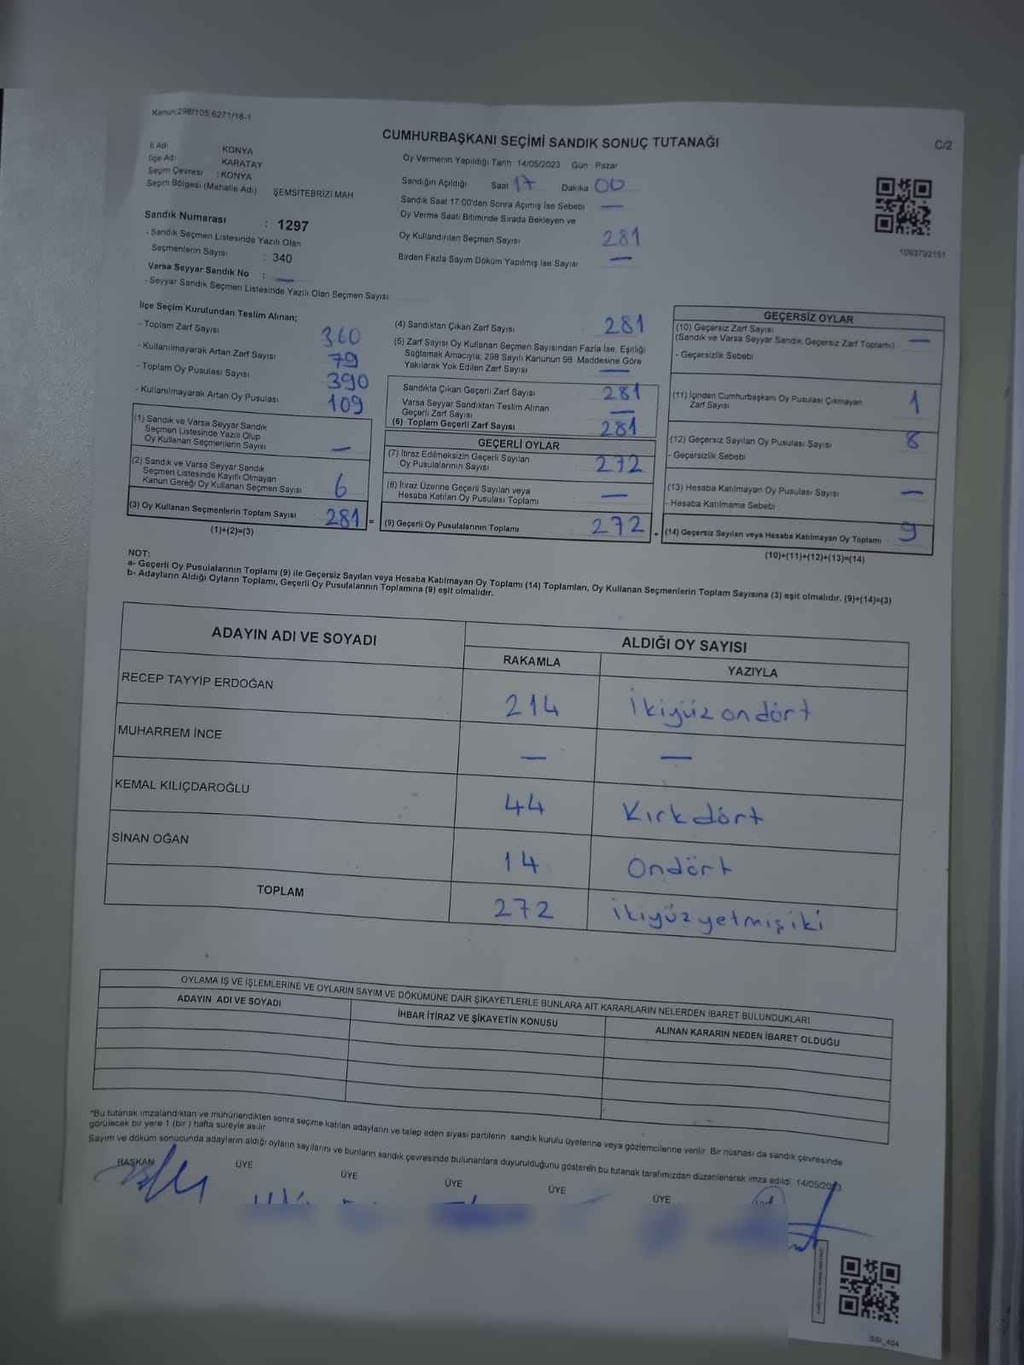 Kanun:298/105,6271/18-1
CUMHURBAŞKANI SEÇİMİ SANDIK SONUÇ TUTANAĞI
C/2
İl Adı : KONYA
İlçe Adı : KARATAY
Seçim Çevresi : KONYA
Seçim Bölgesi (Mahalle Adı) ŞEMSİTEBRİZİ MAH
Sandık Numarası : 1297
- Sandık Seçmen Listesinde Yazılı Olan
Seçmenlerin Sayısı : 340
Varsa Seyyar Sandık No : —
- Seyyar Sandık Seçmen Listesinde Yazılı Olan Seçmen Sayısı
Oy Vermenin Yapıldığı Tarih: 14/05/2023 Gün : Pazar
Sandığın Açıldığı Saat 17 Dakika 00
Sandık Saat 17:00'den Sonra Açılmış İse Sebebi —
Oy Verme Saati Bitiminde Sırada Bekleyen ve
Oy Kullandırılan Seçmen Sayısı 281
Birden Fazla Sayım Döküm Yapılmış İse Sayısı —
1093792151
İlçe Seçim Kurulundan Teslim Alınan;
- Toplam Zarf Sayısı 360
- Kullanılmayarak Artan Zarf Sayısı 79
- Toplam Oy Pusulası Sayısı 390
- Kullanılmayarak Artan Oy Pusulası 109
(1) Sandık ve Varsa Seyyar Sandık
Seçmen Listesinde Yazılı Olup
Oy Kullanan Seçmenlerin Sayısı —
(2) Sandık ve Varsa Seyyar Sandık
Seçmen Listesinde Kayıtlı Olmayan
Kanun Gereği Oy Kullanan Seçmen Sayısı 6
(3) Oy Kullanan Seçmenlerin Toplam Sayısı 281 =
(1)+(2)=(3)
(4) Sandıktan Çıkan Zarf Sayısı 281
(5) Zarf Sayısı Oy Kullanan Seçmen Sayısından Fazla İse, Eşitliği
Sağlamak Amacıyla; 298 Sayılı Kanunun 98. Maddesine Göre
Yakılarak Yok Edilen Zarf Sayısı —
Sandıkta Çıkan Geçerli Zarf Sayısı 281
Varsa Seyyar Sandıktan Teslim Alınan
Geçerli Zarf Sayısı —
(6) Toplam Geçerli Zarf Sayısı 281
GEÇERLİ OYLAR
(7) İtiraz Edilmeksizin Geçerli Sayılan
Oy Pusulalarının Sayısı 272
(8) İtiraz Üzerine Geçerli Sayılan veya
Hesaba Katılan Oy Pusulası Toplamı —
(9) Geçerli Oy Pusulalarının Toplamı 272 +
GEÇERSİZ OYLAR
(10) Geçersiz Zarf Sayısı
(Sandık ve Varsa Seyyar Sandık Geçersiz Zarf Toplamı) —
- Geçersizlik Sebebi
(11) İçinden Cumhurbaşkanı Oy Pusulası Çıkmayan
Zarf Sayısı 1
(12) Geçersiz Sayılan Oy Pusulası Sayısı 8
- Geçersizlik Sebebi
(13) Hesaba Katılmayan Oy Pusulası Sayısı —
- Hesaba Katılmama Sebebi
(14) Geçersiz Sayılan veya Hesaba Katılmayan Oy Toplamı 9
(10)+(11)+(12)+(13)=(14)
NOT:
a- Geçerli Oy Pusulalarının Toplamı (9) ile Geçersiz Sayılan veya Hesaba Katılmayan Oy Toplamı (14) Toplamları, Oy Kullanan Seçmenlerin Toplam Sayısına (3) eşit olmalıdır. (9)+(14)=(3)
b- Adayların Aldığı Oyların Toplamı, Geçerli Oy Pusulalarının Toplamına (9) eşit olmalıdır.
ADAYIN ADI VE SOYADI ALDIĞI OY SAYISI
RAKAMLA YAZIYLA
RECEP TAYYİP ERDOĞAN 214 İkiyüzondört
MUHARREM İNCE — —
KEMAL KILIÇDAROĞLU 44 Kırkdört
SİNAN OĞAN 14 Ondört
TOPLAM 272 ikiyüzyetmişiki
OYLAMA İŞ VE İŞLEMLERİNE VE OYLARIN SAYIM VE DÖKÜMÜNE DAİR ŞİKAYETLERLE BUNLARA AİT KARARLARIN NELERDEN İBARET BULUNDUKLARI
ADAYIN ADI VE SOYADI İHBAR İTİRAZ VE ŞİKAYETİN KONUSU ALINAN KARARIN NEDEN İBARET OLDUĞU
*Bu tutanak imzalandıktan ve mühürlendikten sonra seçime katılan adayların ve talep eden siyasi partilerin sandık kurulu üyelerine veya gözlemcilerine verilir. Bir nüshası da sandık çevresinde
görülecek bir yere 1 (bir) hafta süreyle asılır.
Sayım ve döküm sonucunda adayların aldığı oyların sayılarını ve bunların sandık çevresinde bulunanlara duyurulduğunu gösteren bu tutanak tarafımızdan düzenlenerek imza edildi. 14/05/2023
BAŞKAN ÜYE ÜYE ÜYE ÜYE ÜYE